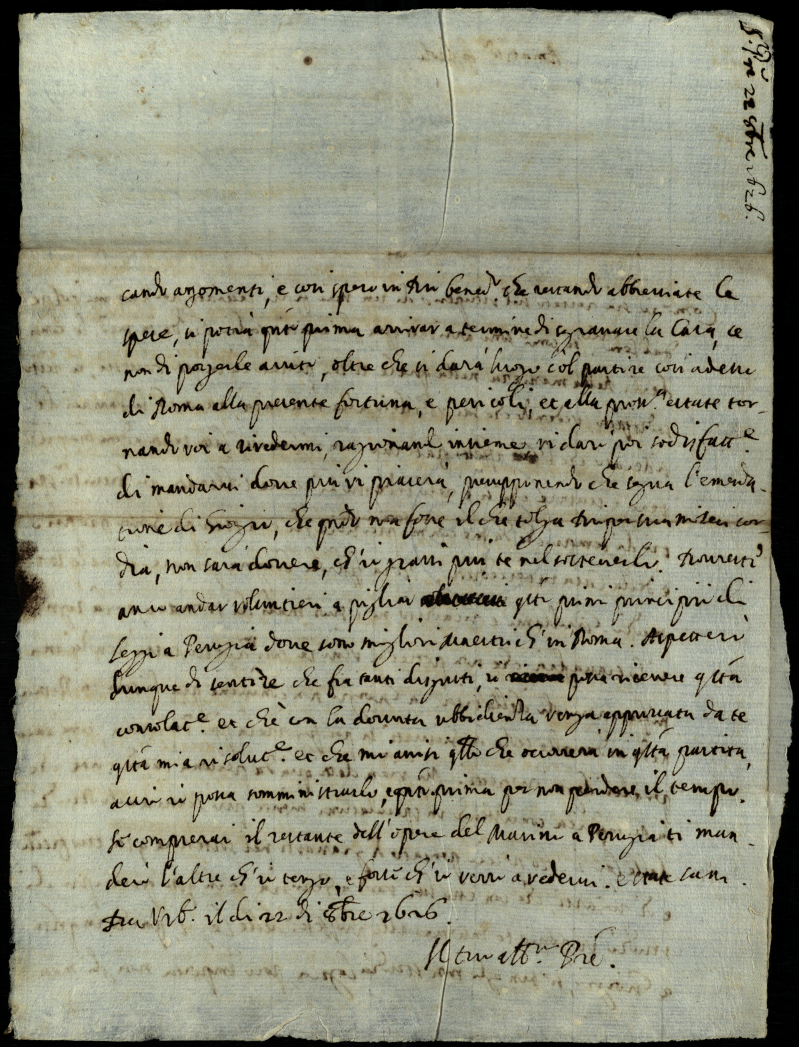 S.r Pre 22 8bre 1626.
cando argomenti, e così spero in Dio bened.o che restando abbreviate le
spese, si potrà q.to prima arrivar a termine di sgravare la Casa, se
non di porgerle aiuto, oltre che si darà luogo col partire così adesso
di Roma alla presente fortuna, e pericoli, et alla pross.a estate tor-
nando voi a rivedermi, ragionand insieme, vi darò poi sodisfatt.e
di mandarvi dove più vi piacerà, presupponendo che segua l'emenda-
tione di Giorgio, che q.ndo non fosse il che tolga Dio per sua misericor-
dia, non sarà dovere, ch'io gravi più te nel sostenerlo. Dovresti
anco andar volontieri a pigliar q.sti primi principii di
leggi a Perugia dove sono migliori Maestri ch'in Roma. Aspetterò
dunque di sentire che fra tanti disgusti, io possa ricevere q.sta
consolat.e et che con la dovuta ubbidienza venga appuntata da te
q.sta mia risolut.e et che mi avisi q.llo che occorrerà in q.sta partita,
acciò si possa somministrarlo, q.to prima per non perdere il tempo.
Se comprerai il restante dell'opere del Marini a Perugia ti man-
derò l'altre ch'io tengo, e forse ch'io verrò a vedervi. e state sani.
Da Urb.o il di 22 di 8bre 1626.
Il tuo aff.mo Pre.